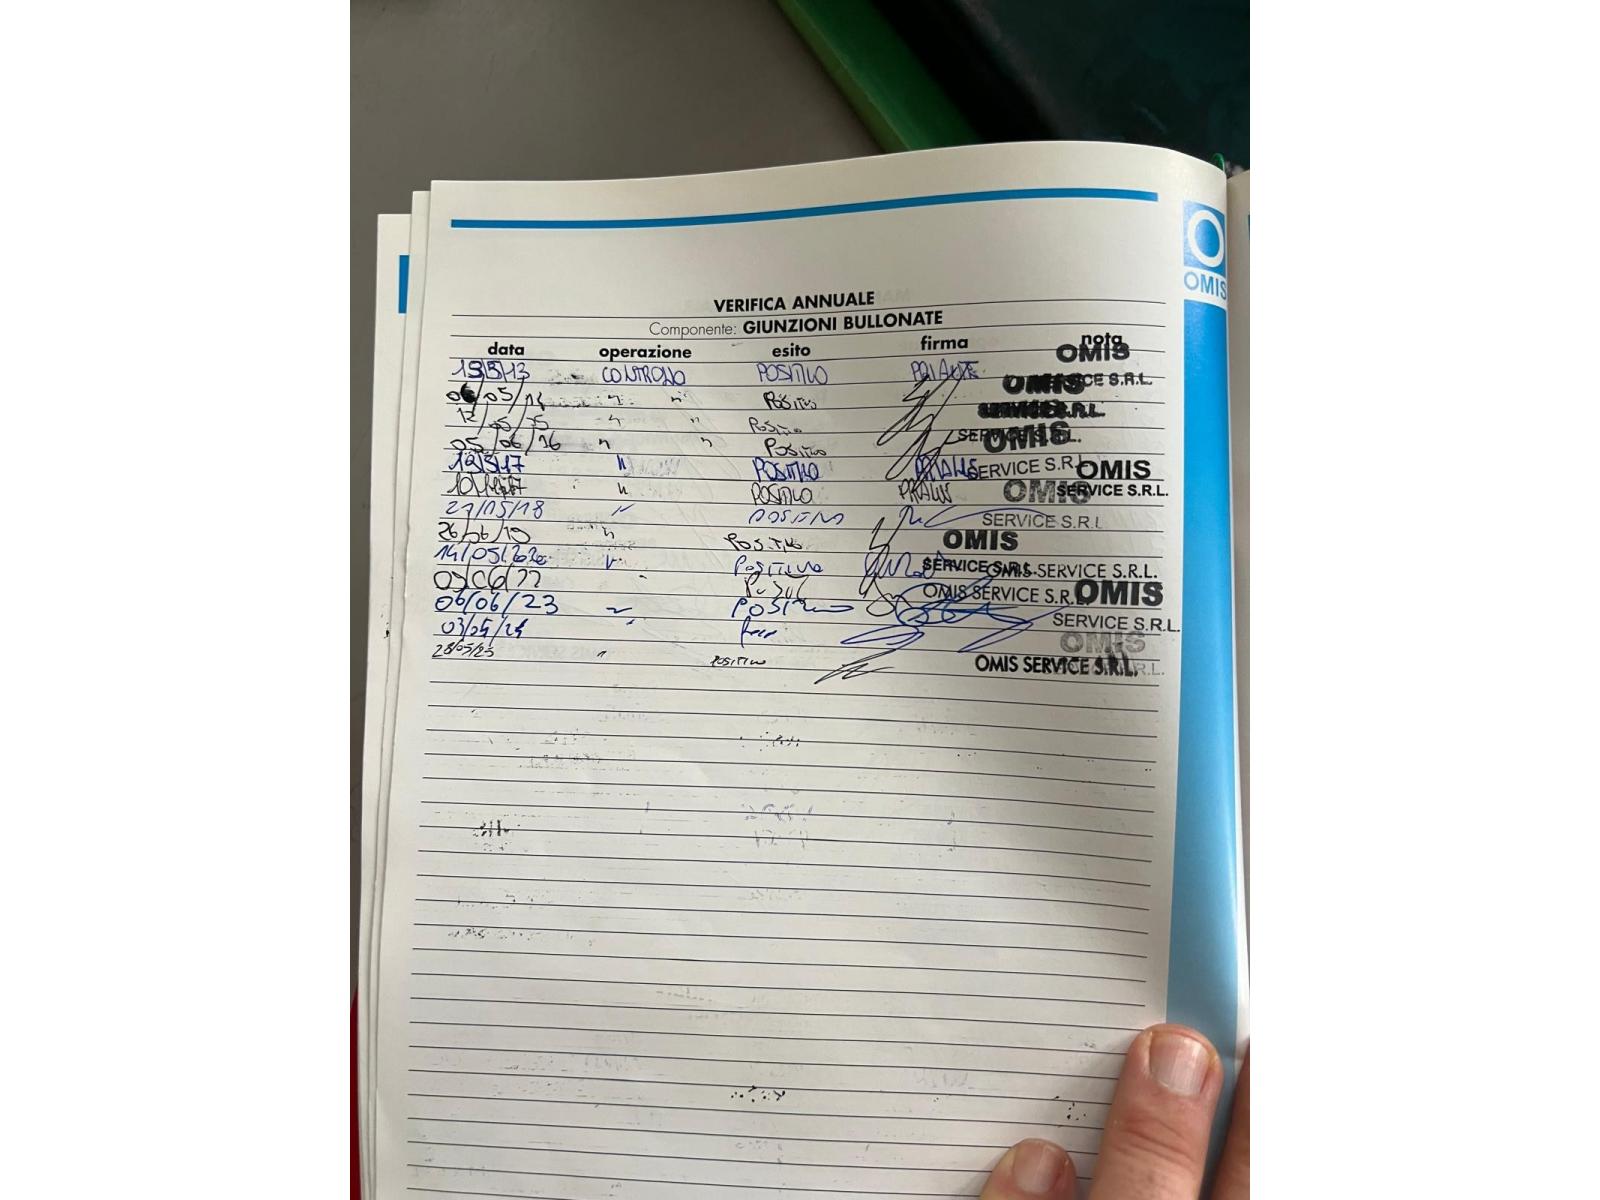 OMIS
VERIFICA ANNUALE
Componente: GIUNZIONI BULLONATE
data operazione esito firma nota
13/5/13 CONTROLLO POSITIVO OMIS
06/05/14 " " POSITIVO OMIS SERVICE S.R.L.
12/05/15 " " POSITIVO SERVICE S.R.L.
05/06/16 " " POSITIVO SERVICE S.R.L. OMIS
12/5/17 " POSITIVO SERVICE S.R.L. OMIS
" POSITIVO OMIS SERVICE S.R.L.
21/05/18 " POSITIVO SERVICE S.R.L.
26/06/19 " POSITIVO OMIS
14/05/2020 " POSITIVO SERVICE S.R.L. OMIS SERVICE S.R.L.
03/06/22 OMIS SERVICE S.R.L. OMIS
06/06/23 " POSITIVO SERVICE S.R.L.
03/05/24 " OMIS
28/05/25 " POSITIVO OMIS SERVICE S.R.L.